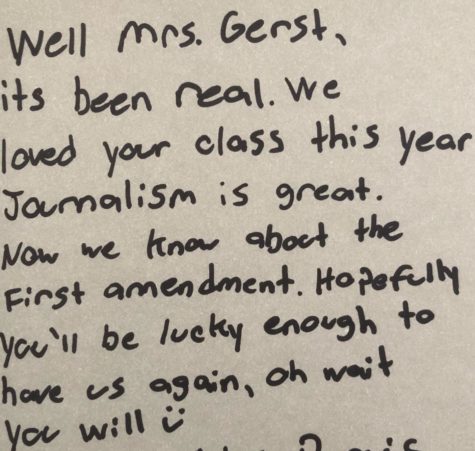 Well Mrs. Gerst,
its been real. We
loved your class this year
Journalism is great.
Now we know about the
First amendment. Hopefully
you'll be lucky enough to
have us again, oh wait
you will ü